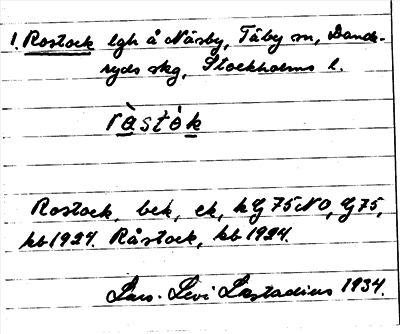 1. Rostock lgh å Näsby, Täby sn, Dande-
ryds skg, Stockholms l.
ràstòk
Rostock, bek, ek, hG 75NO, G75,
kb 1924. Råstock, kb 1924.
Lars-Levi Læstadius 1934.